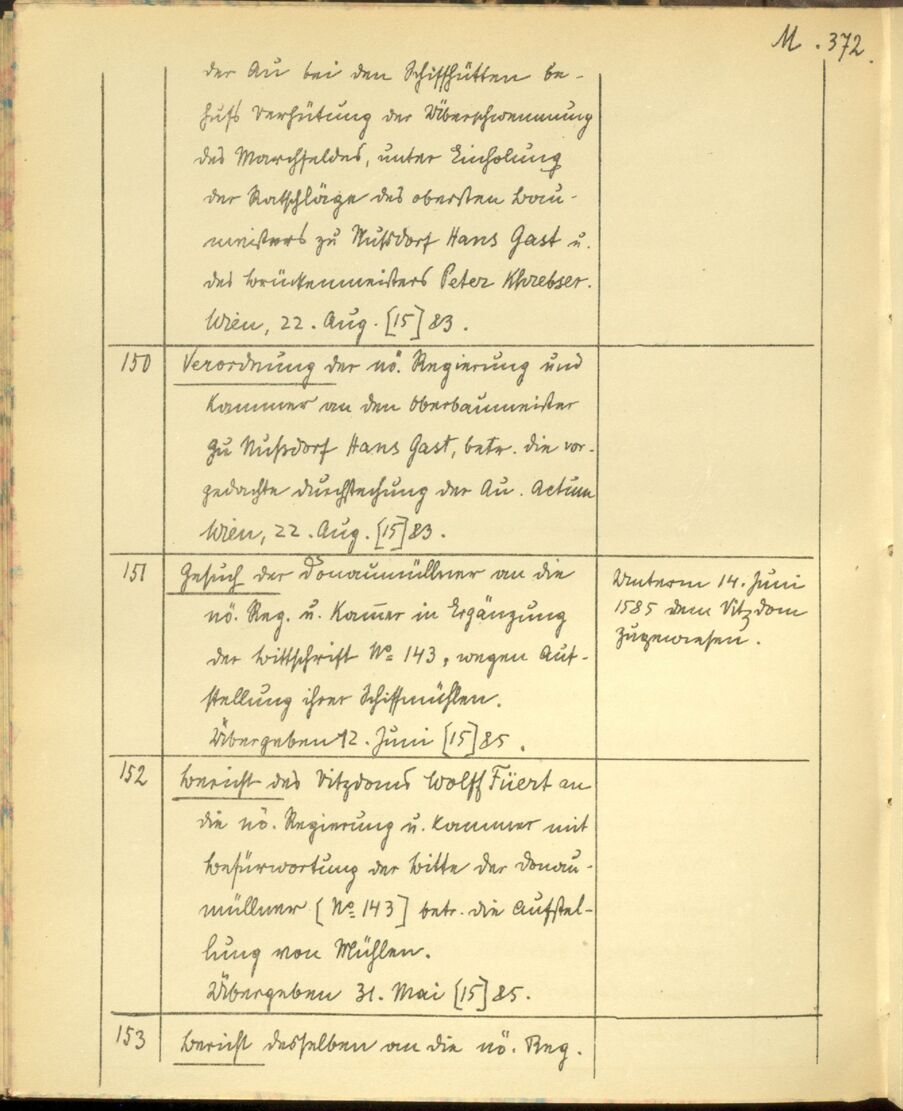 M. 372.
der Au bei den Schiffhütten be-
hufs Verhütung der Überschwemmung
des Marchfeldes, unter Einholung
der Ratschläge des obersten Bau-
meisters zu Nußdorf Hans Gast u.
des Brückenmeisters Peter Khrebser.
Wien, 22. Aug. [15]83.
150 Verordnung der nö. Regierung und
Kammer an den Oberbaumeister
zu Nußdorf Hans Gast, betr. die vor-
gedachte Durchstechung der Au. Actum
Wien, 22. Aug. [15]83.
151 Gesuch der Donaumüllner an die
nö. Reg. u. Kam̅er in Ergänzung
der Bittschrift No 143, wegen Auf-
stellung ihrer Schiffmühlen.
Übergeben 12. Juni [15]85.
Unterm 14. Juni
1585 dem Vitzdom
zugewiesen.
152 Bericht des Vitzdoms Wolff Füert an
die nö. Regierung u. Kammer mit
Befürwortung der Bitte der Donau-
müllner [No 143] betr. die Aufstel-
lung von Mühlen.
Übergeben 31. Mai [15]85.
153 Bericht desselben an die nö. Reg.